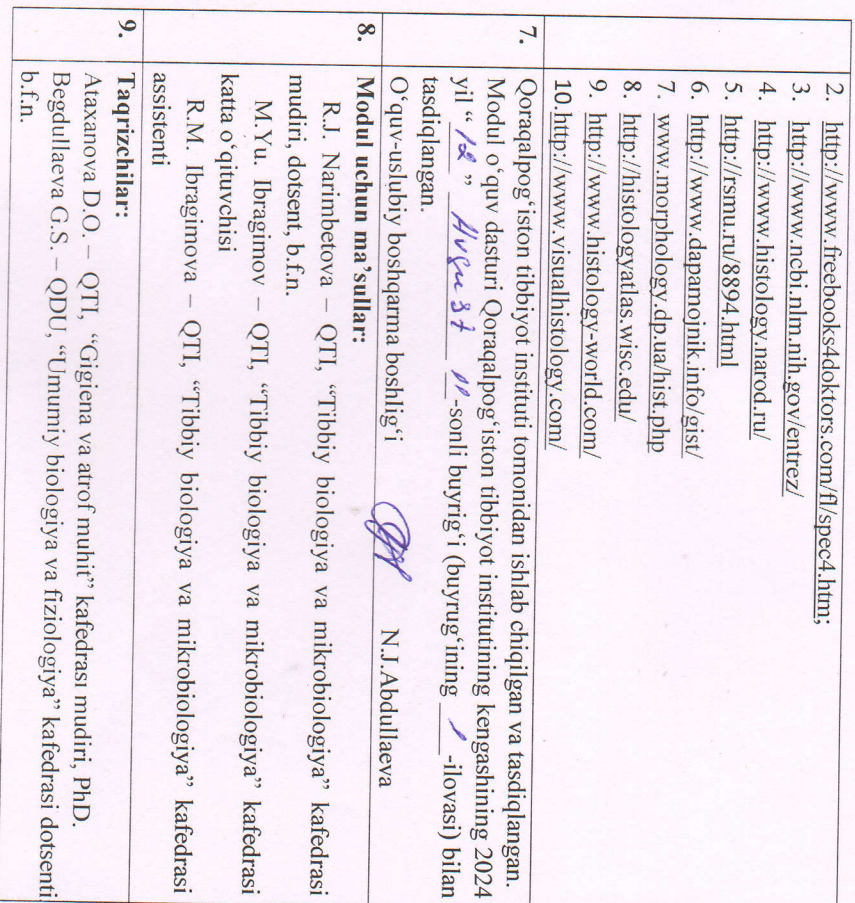 2. http://www.freebooks4doktors.com/fl/spec4.htm;
3. http://www.ncbi.nlm.nih.gov/entrez/
4. http://www.histology.narod.ru/
5. http://rsmu.ru/8894.html
6. http://www.dapamojnik.info/gist/
7. www.morphology.dp.ua/hist.php
8. http://histologyatlas.wisc.edu/
9. http://www.histology-world.com/
10.http://www.visualhistology.com/
7. Qoraqalpogʻiston tibbiyot instituti tomonidan ishlab chiqilgan va tasdiqlangan.
Modul oʻquv dasturi Qoraqalpogʻiston tibbiyot institutining kengashining 2024
yil “12” Avgust -sonli buyrigʻi (buyrugʻining 1 -ilovasi) bilan
tasdiqlangan.
Oʻquv-uslubiy boshqarma boshligʻi N.J.Abdullaeva
8. Modul uchun ma’sullar:
R.J. Narimbetova – QTI, “Tibbiy biologiya va mikrobiologiya” kafedrasi
mudiri, dotsent, b.f.n.
M.Yu. Ibragimov – QTI, “Tibbiy biologiya va mikrobiologiya” kafedrasi
katta oʻqituvchisi
R.M. Ibragimova – QTI, “Tibbiy biologiya va mikrobiologiya” kafedrasi
assistenti
9. Taqrizchilar:
Ataxanova D.O. – QTI, “Gigiena va atrof muhit” kafedrası mudiri, PhD.
Begdullaeva G.S. – QDU, “Umumiy biologiya va fiziologiya” kafedrasi dotsenti,
b.f.n.